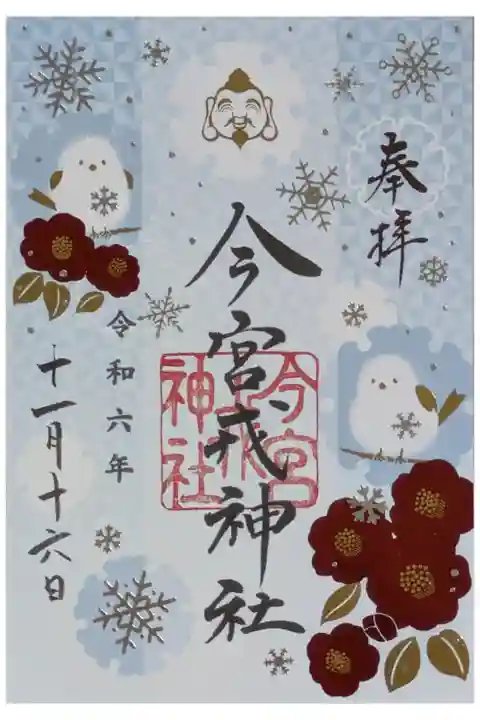 奉拝
今宮戎神社
今宮戎神社
令和六年
十一月十六日